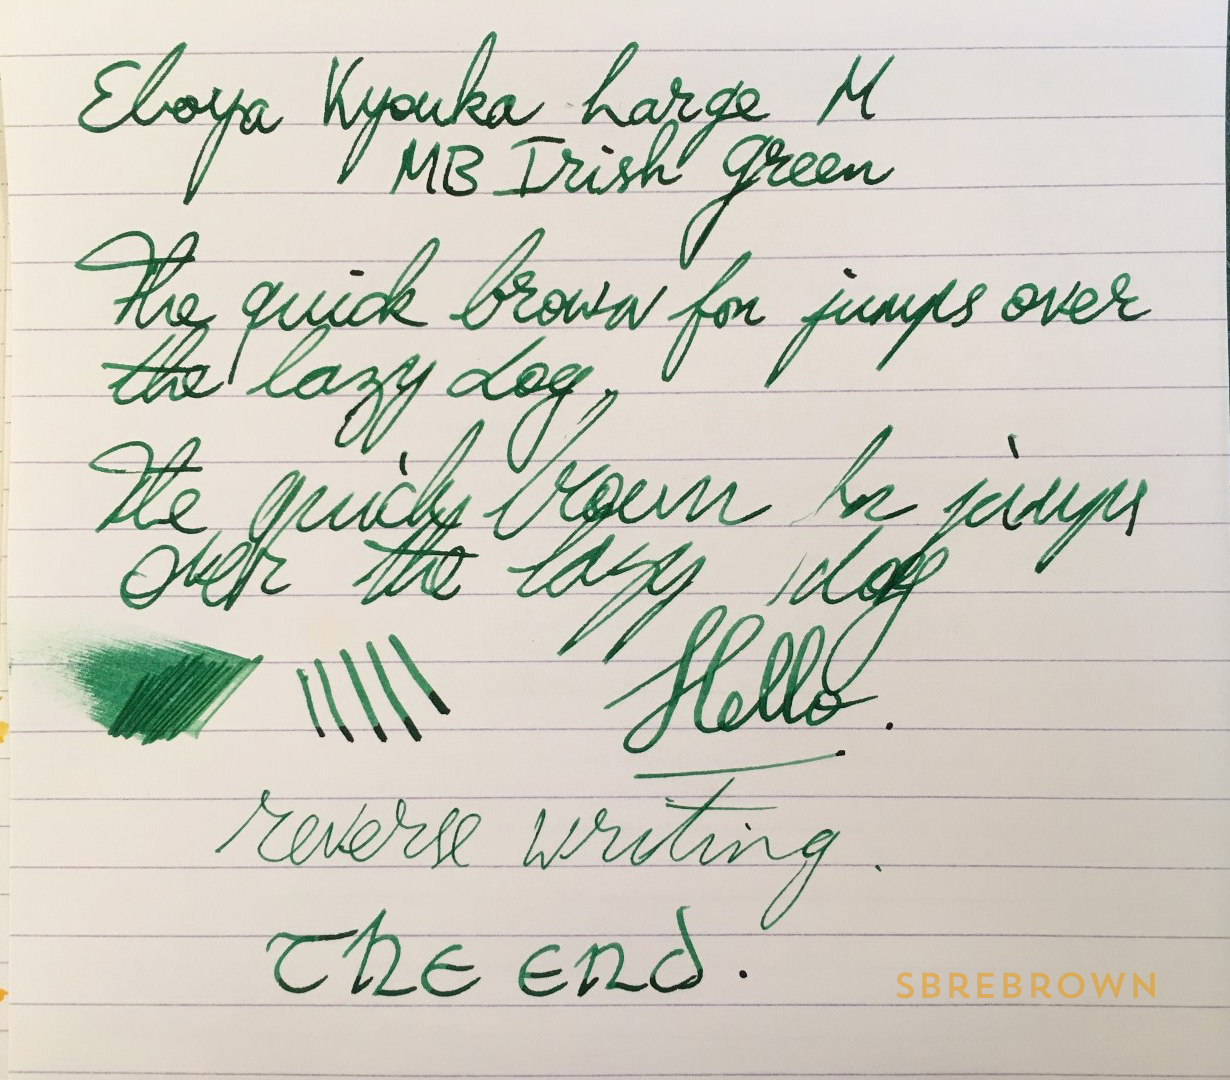 Eboya Kyouka Large M
MB Irish Green
The quick brown fox jumps over
the lazy dog.
The quick brown fox jumps
over the lazy dog
Hello.
reverse writing.
The End.
SBREBROWN